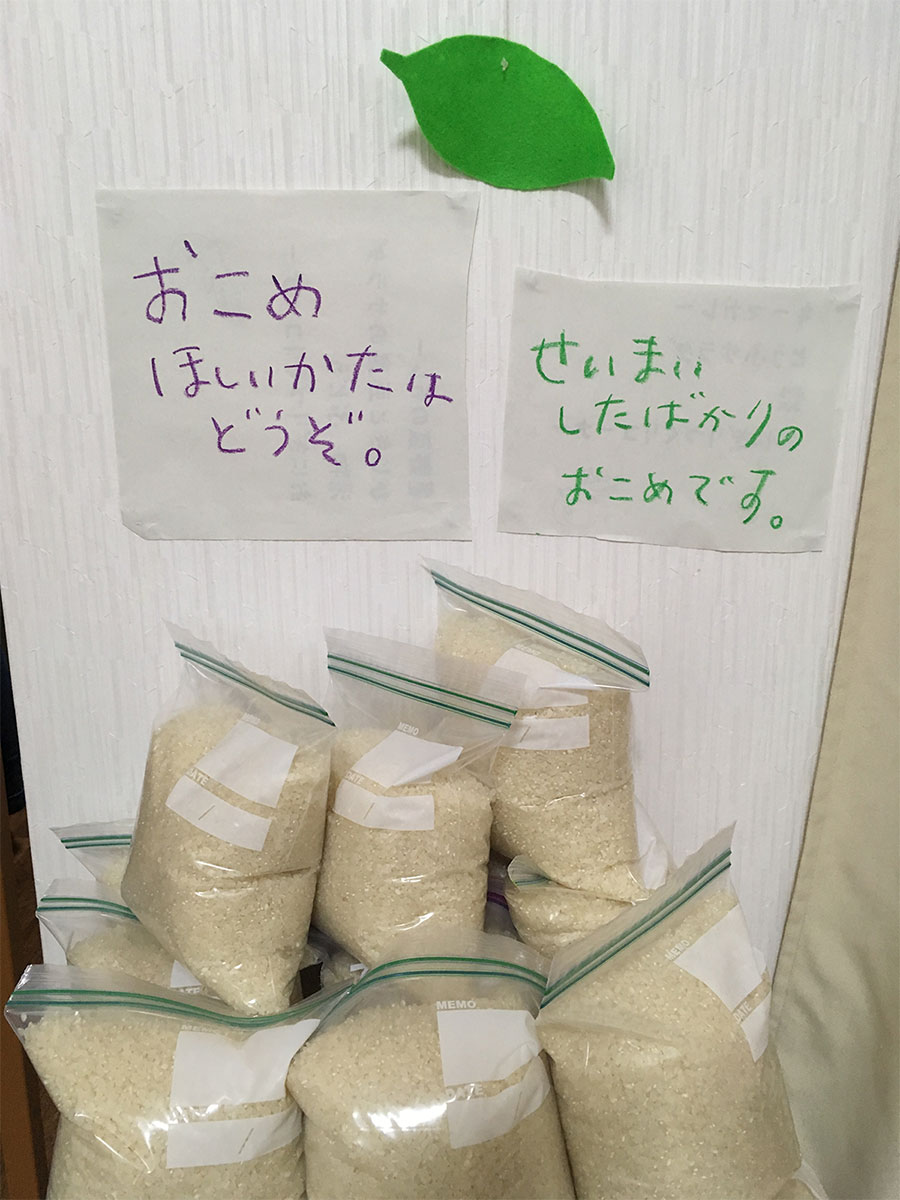 おこめ
ほしいかたは
どうぞ。
せいまい
したばかりの
おこめです。
MEMO
DATE
MEMO
DATE
MEMO
MEMO
DATE